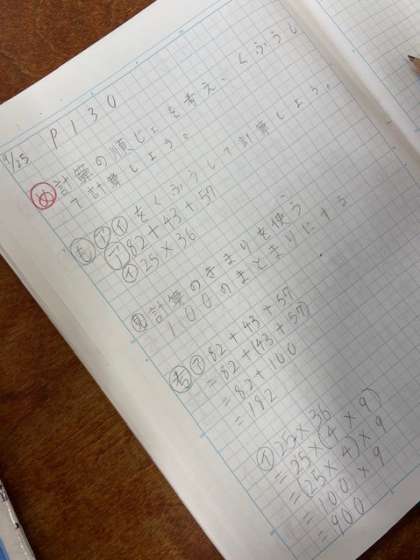 9/25 P130
め 計算の順じょを考え、くふうし
て計算しよう。
も ア イをくふうして計算しよう。
ア 82+43+57
イ 25×36
見 計算のきまりを使う
100のまとまりにする
考 ア 82+43+57
=82+(43+57)
=82+100
=182
イ 25×36
=25×(4×9)
=(25×4)×9
=100×9
=900